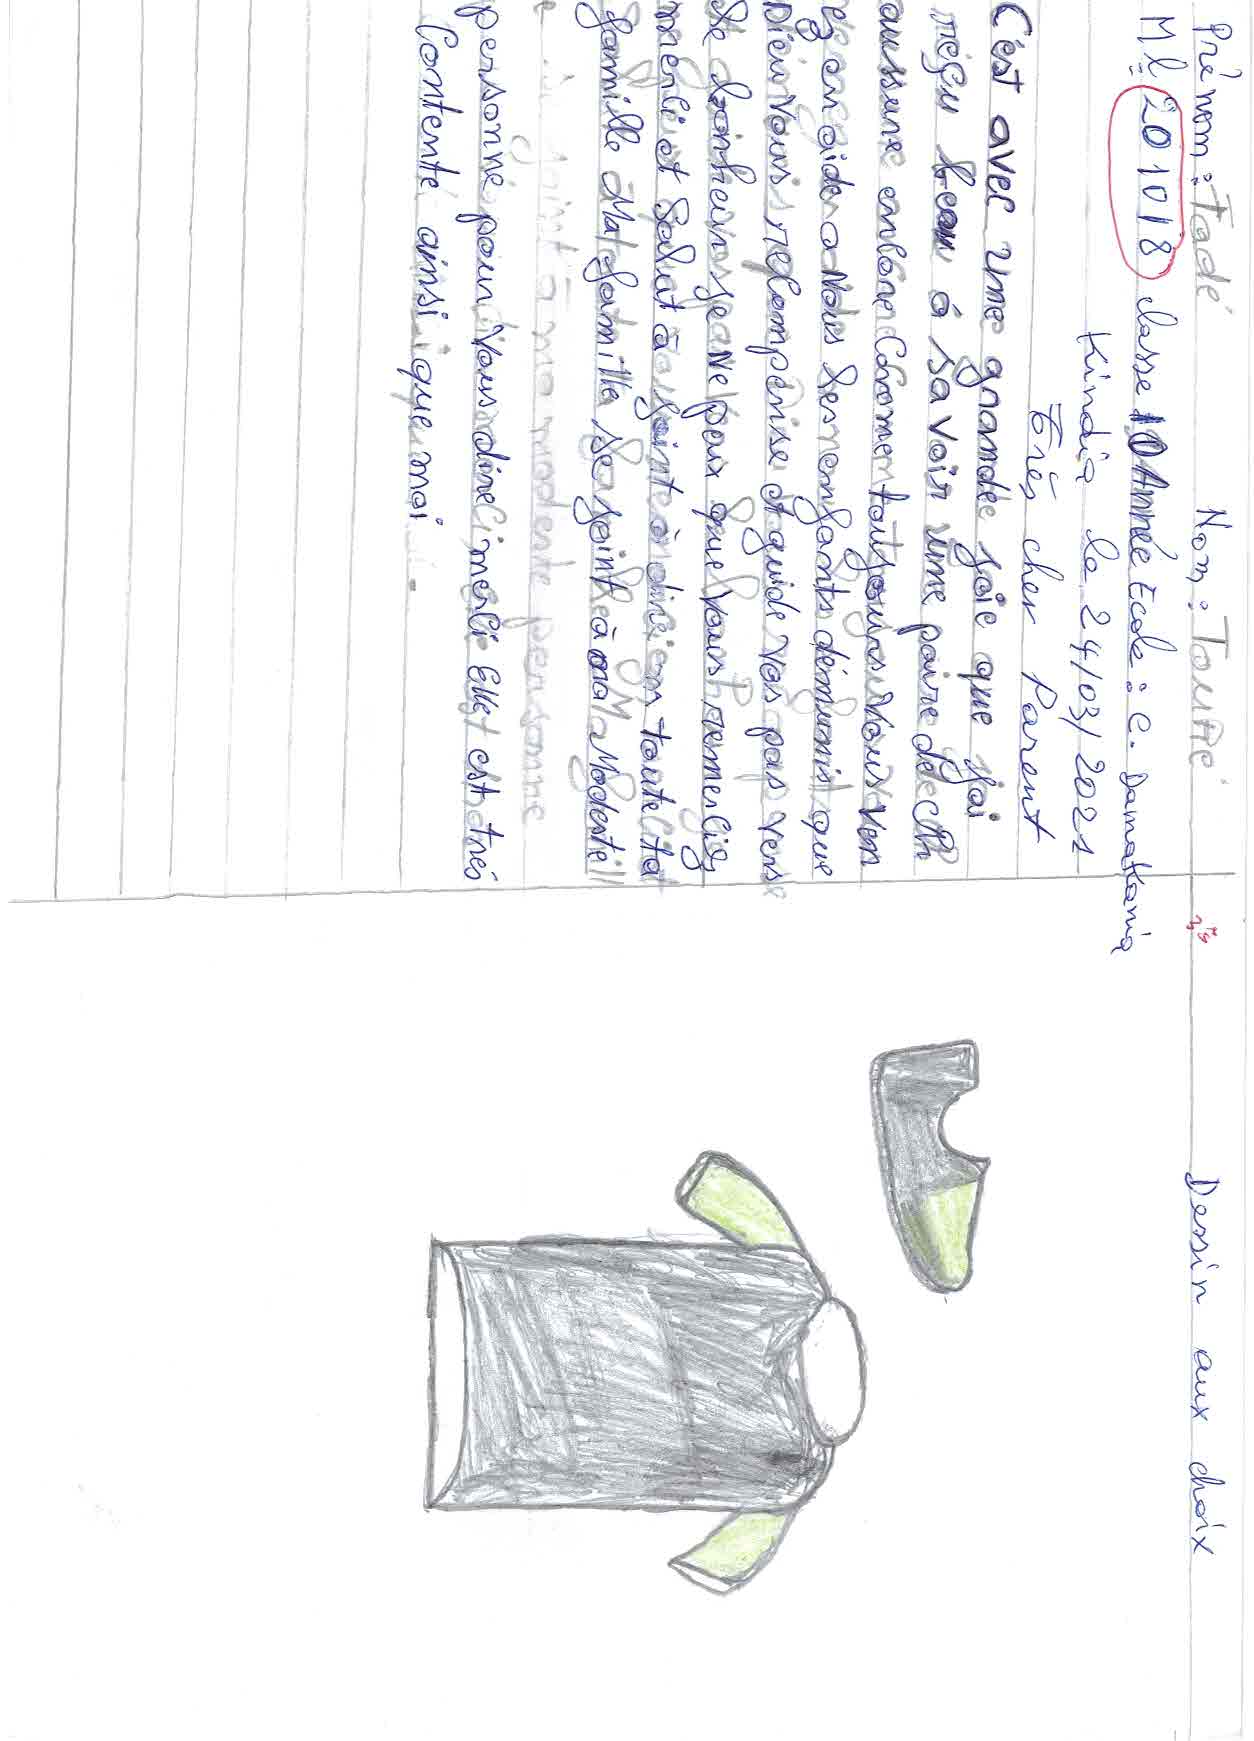 Prénom : Fadé Nom : Touré
ML 201018 classe 10 Année Ecole : C. Damakania
Kindia le 24/03/2021
Très cher Parent
C'est avec une grande joie que j'ai
réçu beau ó savoir une paire de ch
aussure enlore Comme toutjours Vous ven
ez en aider a Nous les
Dieu Vous et guide Vos pas vers
le bonheur je Ne peu que Vous remercier
merli et Salut à
famille Ma famille se joint à ma Modeste
personne pour Vous dire merli Elle est tres
Contente ainsi que moi.
Dessin aux choix